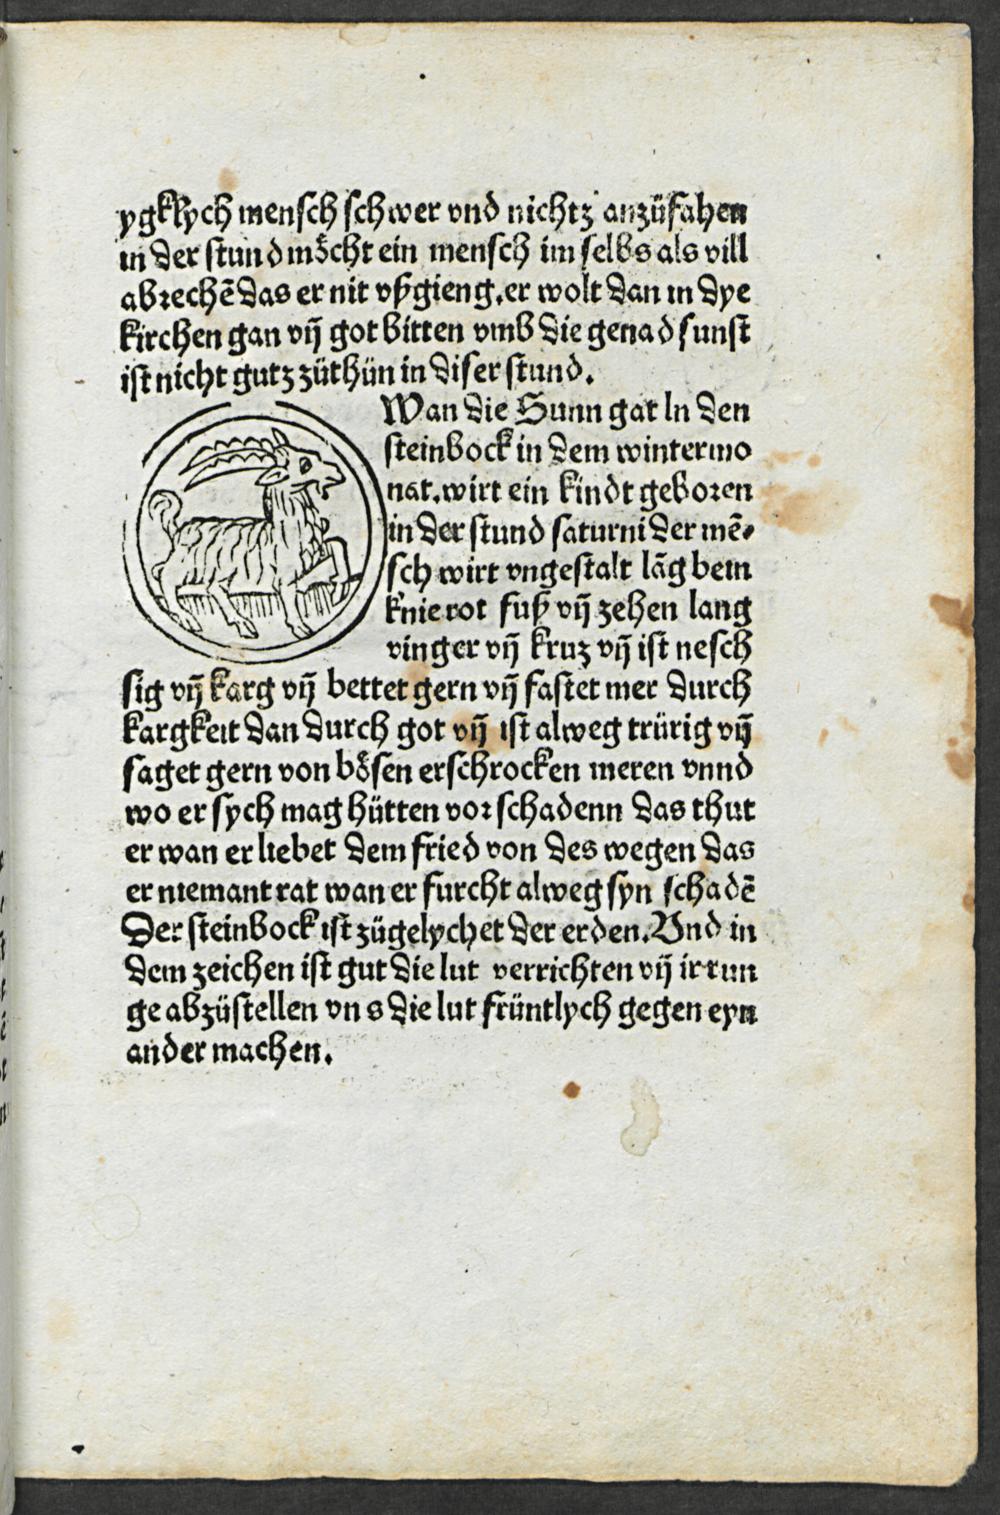 ygklych mensch schwer vnd nichtz anzüfahen
in der stund möcht ein mensch im selbs als vill
abrechē das er nit vßgieng, er wolt dan in dye
kirchen gan vn̄ got bitten vmb die genad sunst
ist nicht gutz züthün in diser stund.
Wan die Sunn gat In den
steinbock in dem wintermo
nat, wirt ein kindt geboren
in der stund saturni der mē⸗
sch wirt vngestalt lāg bein
knie rot fuß vn̄ zehen lang
vinger vn̄ kruz vn̄ ist nesch
sig vn̄ karg vn̄ bettet gern vn̄ fastet mer durch
kargkeit dan durch got vn̄ ist alweg trürig vn̄
saget gern von bösen erschrocken meren vnnd
wo er sych mag hütten vor schadenn das thut
er wan er liebet dem fried von des wegen das
er niemant rat wan er furcht alweg syn schadē
Der steinbock ist zügelychet der erden. Vnd in
dem zeichen ist gut die lut verrichten vn̄ irrun
ge abzüstellen vn s die lut früntlych gegen eyn
ander machen.